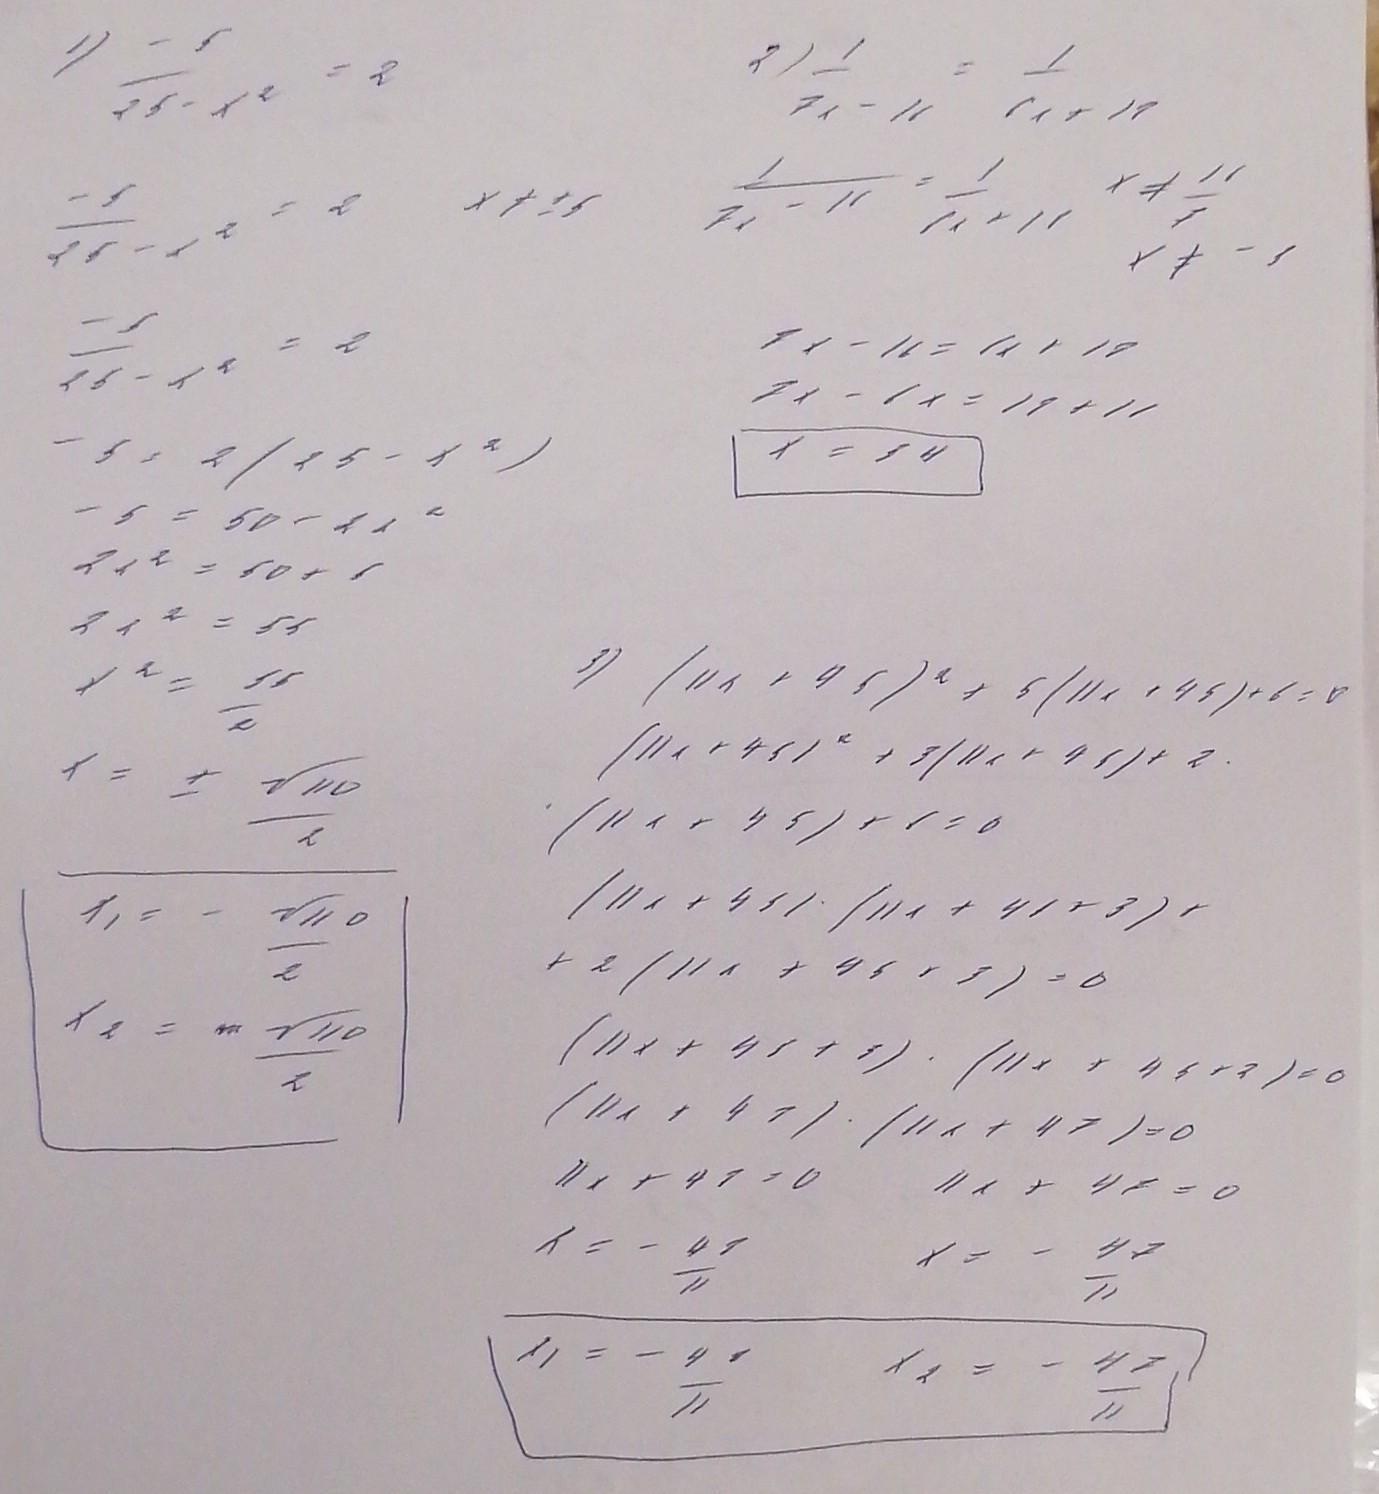 1) -5/(25-x²) = 2
-5/(25-x²) = 2 x≠±5
-5/(25-x²) = 2
-5 = 2(25-x²)
-5 = 50-2x²
2x² = 50+5
2x² = 55
x² = 55/2
x = ± √110/2
x₁ = - √110/2
x₂ = √110/2
2) 1/(7x-16) = 1/(6x+19)
7x-16=6x+19
3) (11x+45)²+5(11x+45)+6=0
(11x+45)²+3(11x+45)+2·
·(11x+45)+6=0
(11x+45)·(11x+45+3)+
+2(11x+45+3)=0
(11x+45+3)·(11x+45+2)=0
(11x+48)·(11x+47)=0
11x+48=0 11x+47=0
x=-48/11 x=-47/11
x₁=-48/11 x₂=-47/11